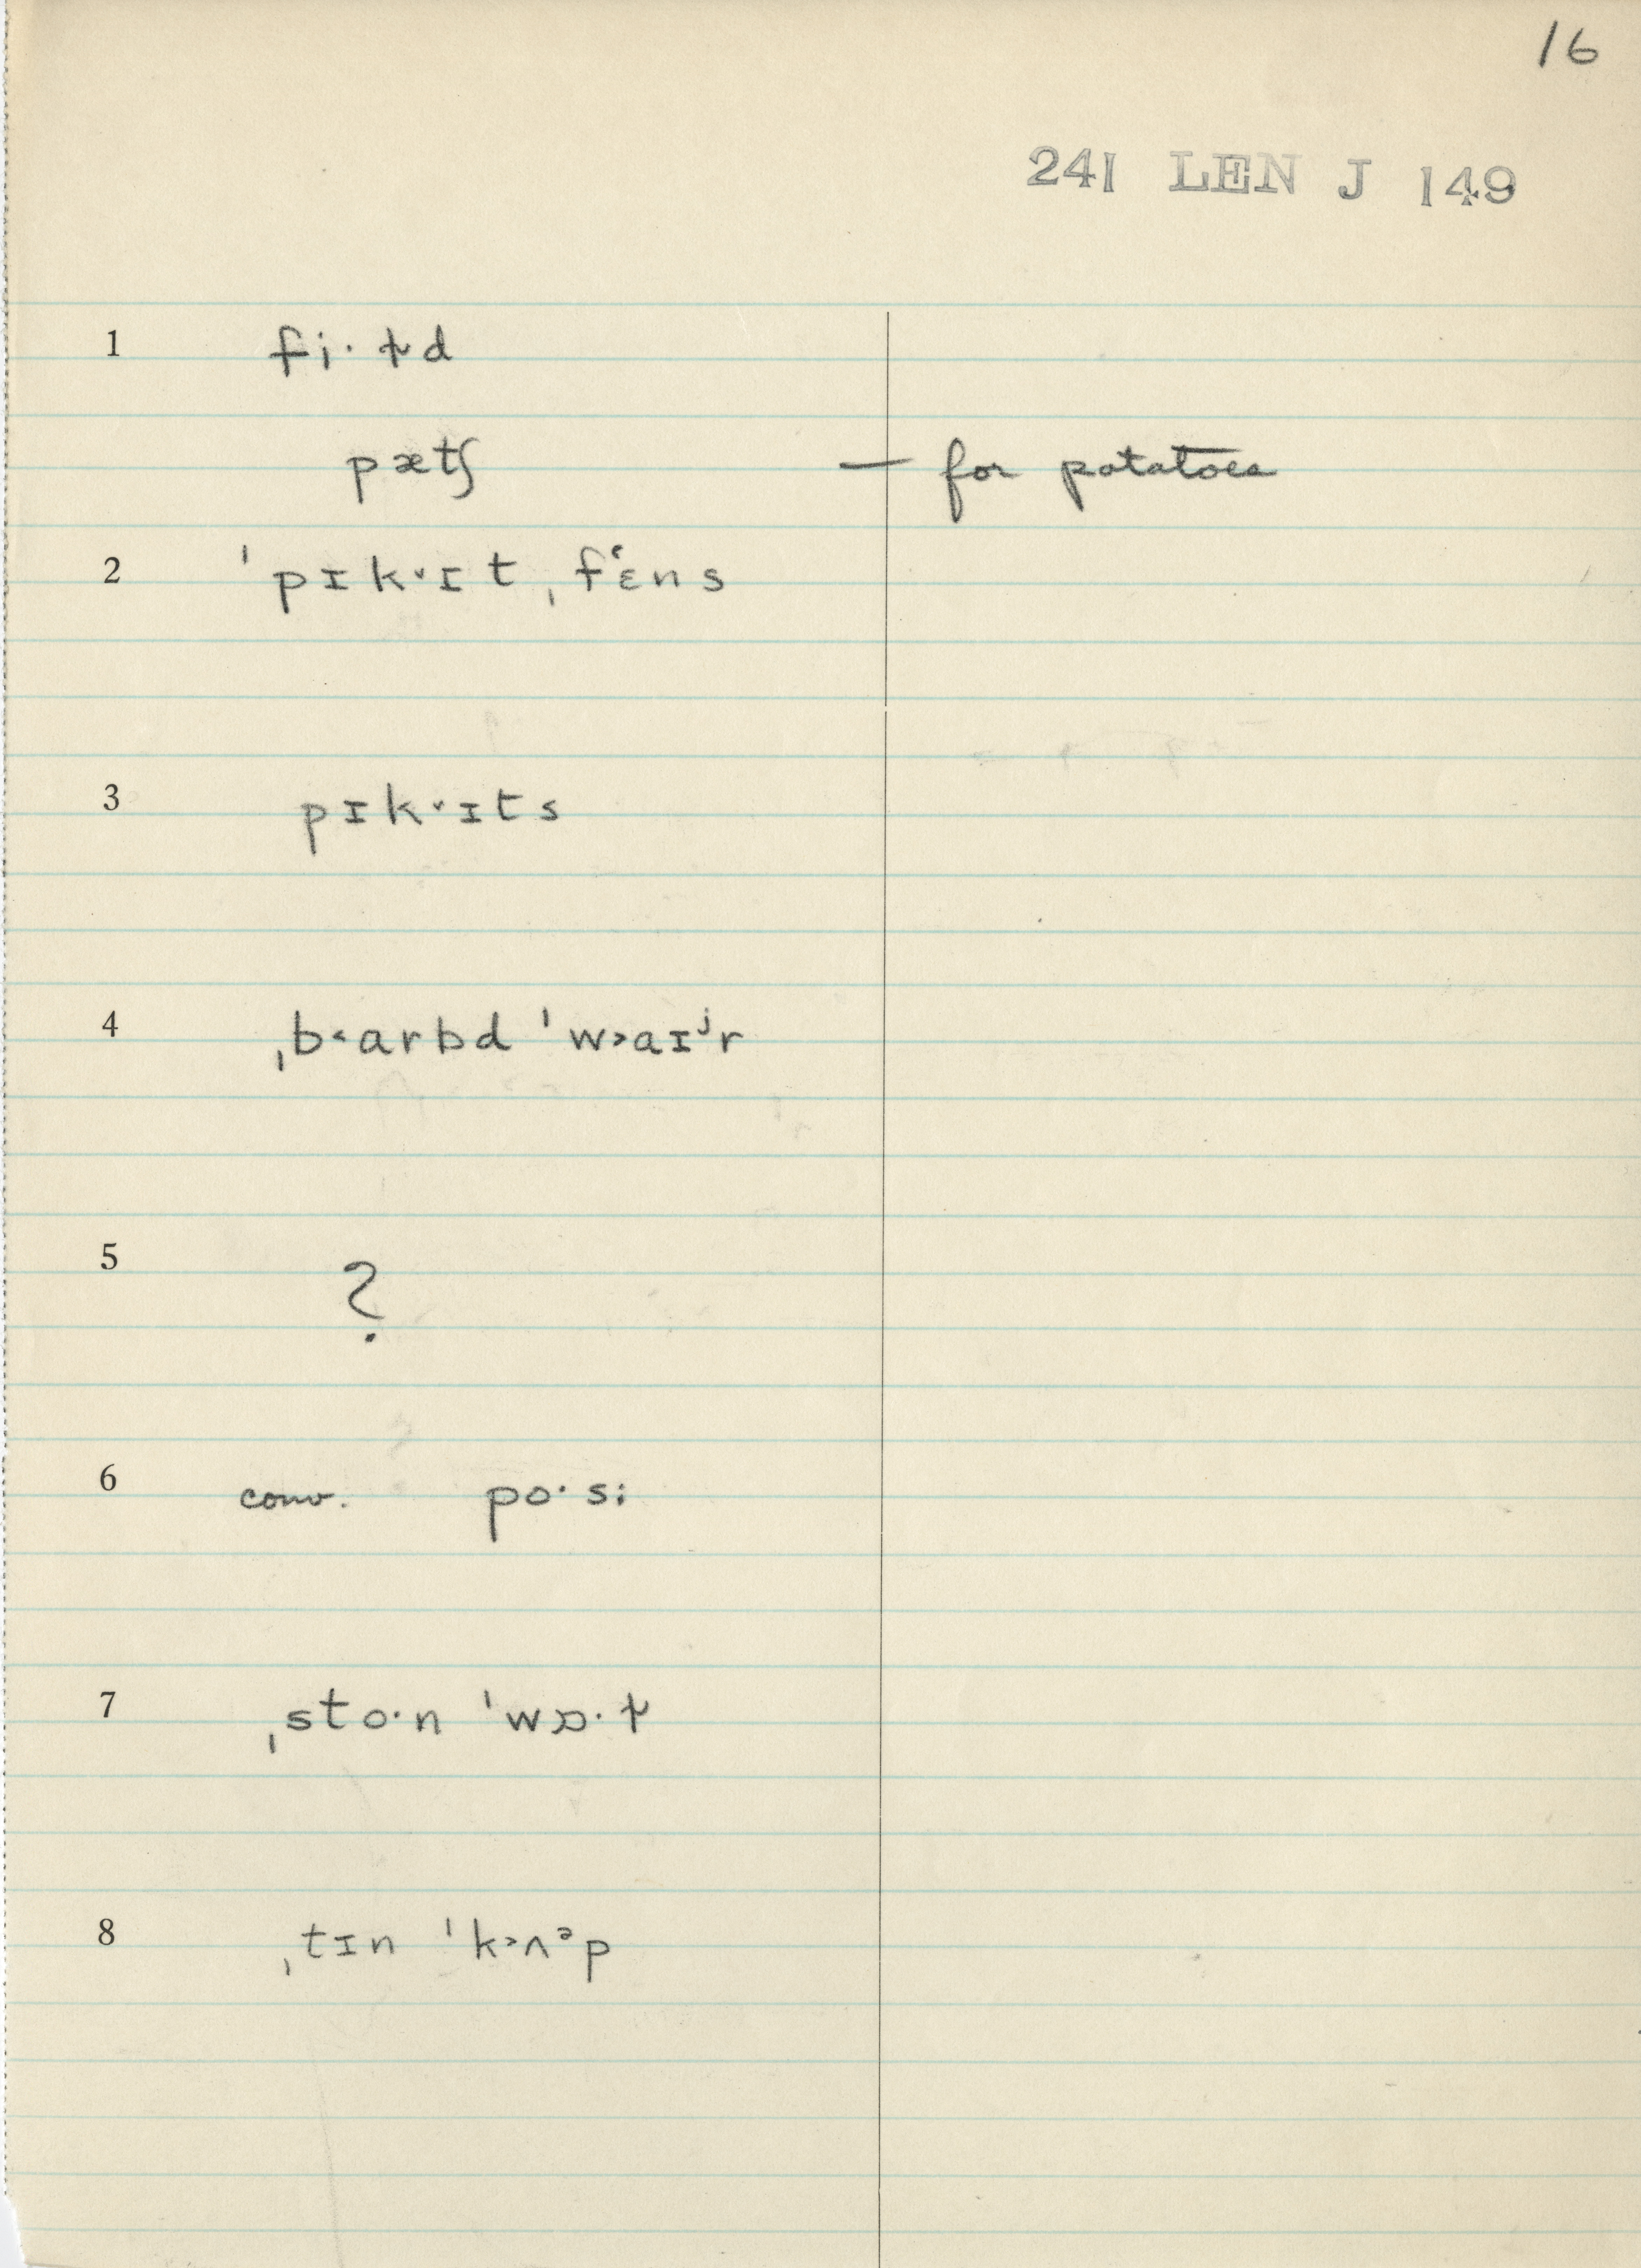 16
241 LEN J 149
1 fi·ɫd
pætʃ — for potatoes
2 ˈpɪk˅ɪt ˌfɛ˓ns
3 pɪk˅ɪts
4 ˌb˂arbd ˈw˃aɪʲr
5 ?
6 conv. po·si
7 ˌsto·n ˈwɒ·ɫ
8 ˌtɪn ˈk˃ʌᵊp